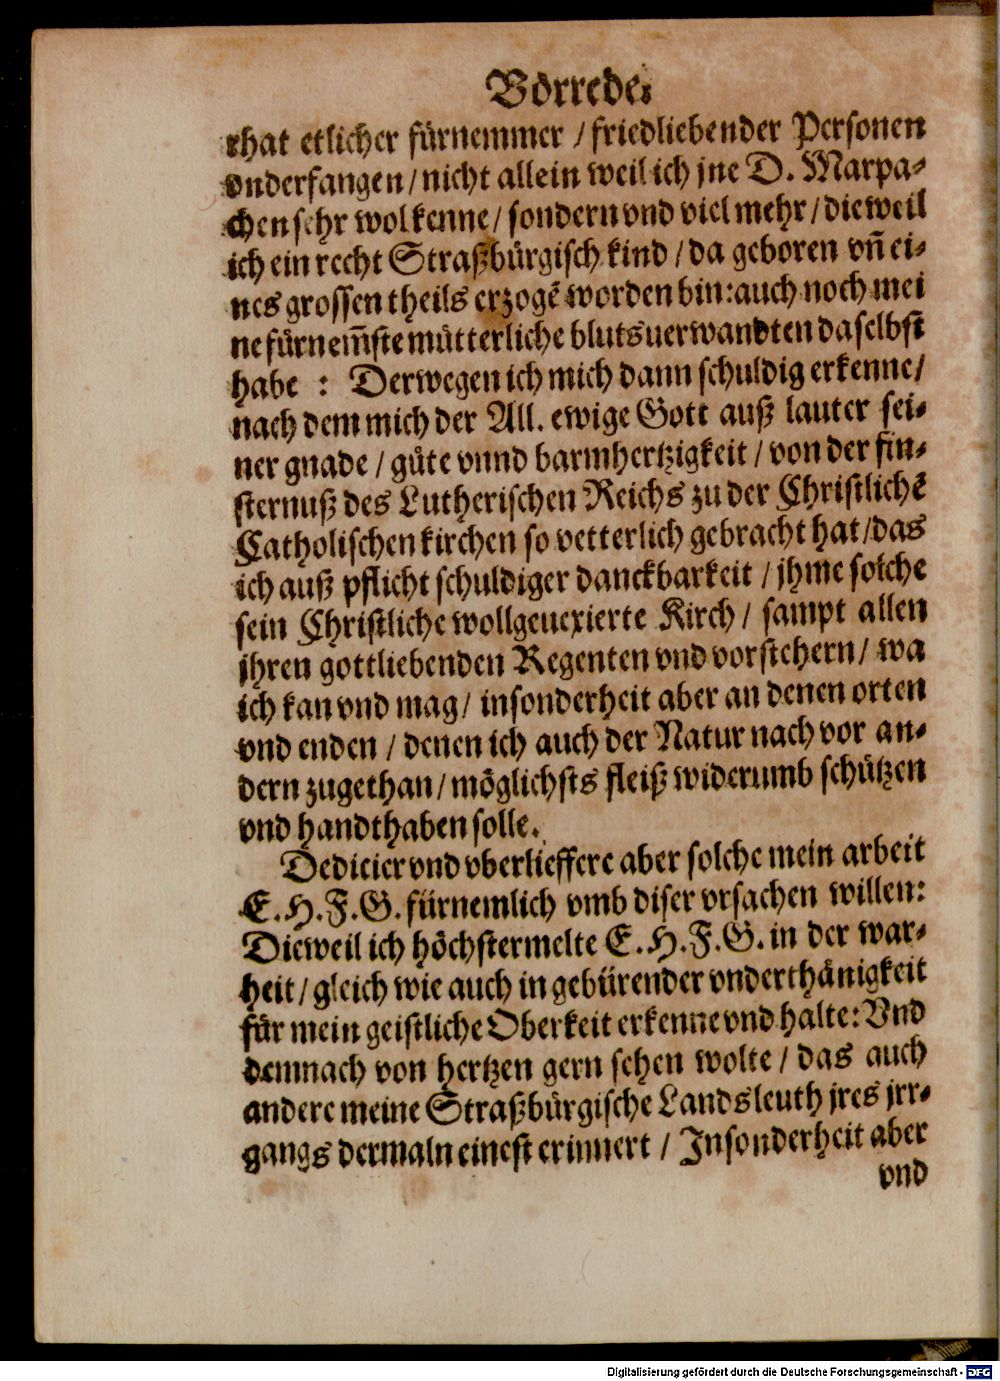 Vorrede.
rhat etlicher fürnemmer / friedliebender Personen
vnderfangen / nicht allein weil ich jne D. Marpa-
chen sehr wol kenne / sondern vnd viel mehr / dieweil
ich ein recht Straßbürgisch kind / da geboren vñ ei-
nes grossen theils erzogẽ worden bin: auch noch mei
ne fürnem̃ste mütterliche blutsuerwandten daselbst
habe : Derwegen ich mich dann schuldig erkenne /
nach dem mich der All. ewige Gott auß lauter sei-
ner gnade / güte vnnd barmhertzigkeit / von der fin-
sternuß des Lutherischen Reichs zu der Christlichẽ
Catholischen kirchen so vetterlich gebracht hat / das
ich auß pflicht schuldiger danckbarkeit / jhme solche
sein Christliche wollgeuexierte Kirch / sampt allen
jhren gottliebenden Regenten vnd vorstehern / wa
ich kan vnd mag / insonderheit aber an denen orten
vnd enden / denen ich auch der Natur nach vor an-
dern zugethan / möglichsts fleiß widerumb schützen
vnd handthaben solle.
Dedicier vnd vberlieffere aber solche mein arbeit
E. H. F. G. fürnemlich vmb diser vrsachen willen:
Dieweil ich höchstermelte E. H. F. G. in der war-
heit / gleich wie auch in gebürender vnderthänigkeit
für mein geistliche Oberkeit erkenne vnd halte: Vnd
demnach von hertzen gern sehen wolte / das auch
andere meine Straßbürgische Landsleuth jres jrr-
gangs dermaln einest erinnert / Insonderheit aber
vnd
Digitalisierung gefördert durch die Deutsche Forschungsgemeinschaft - DFG